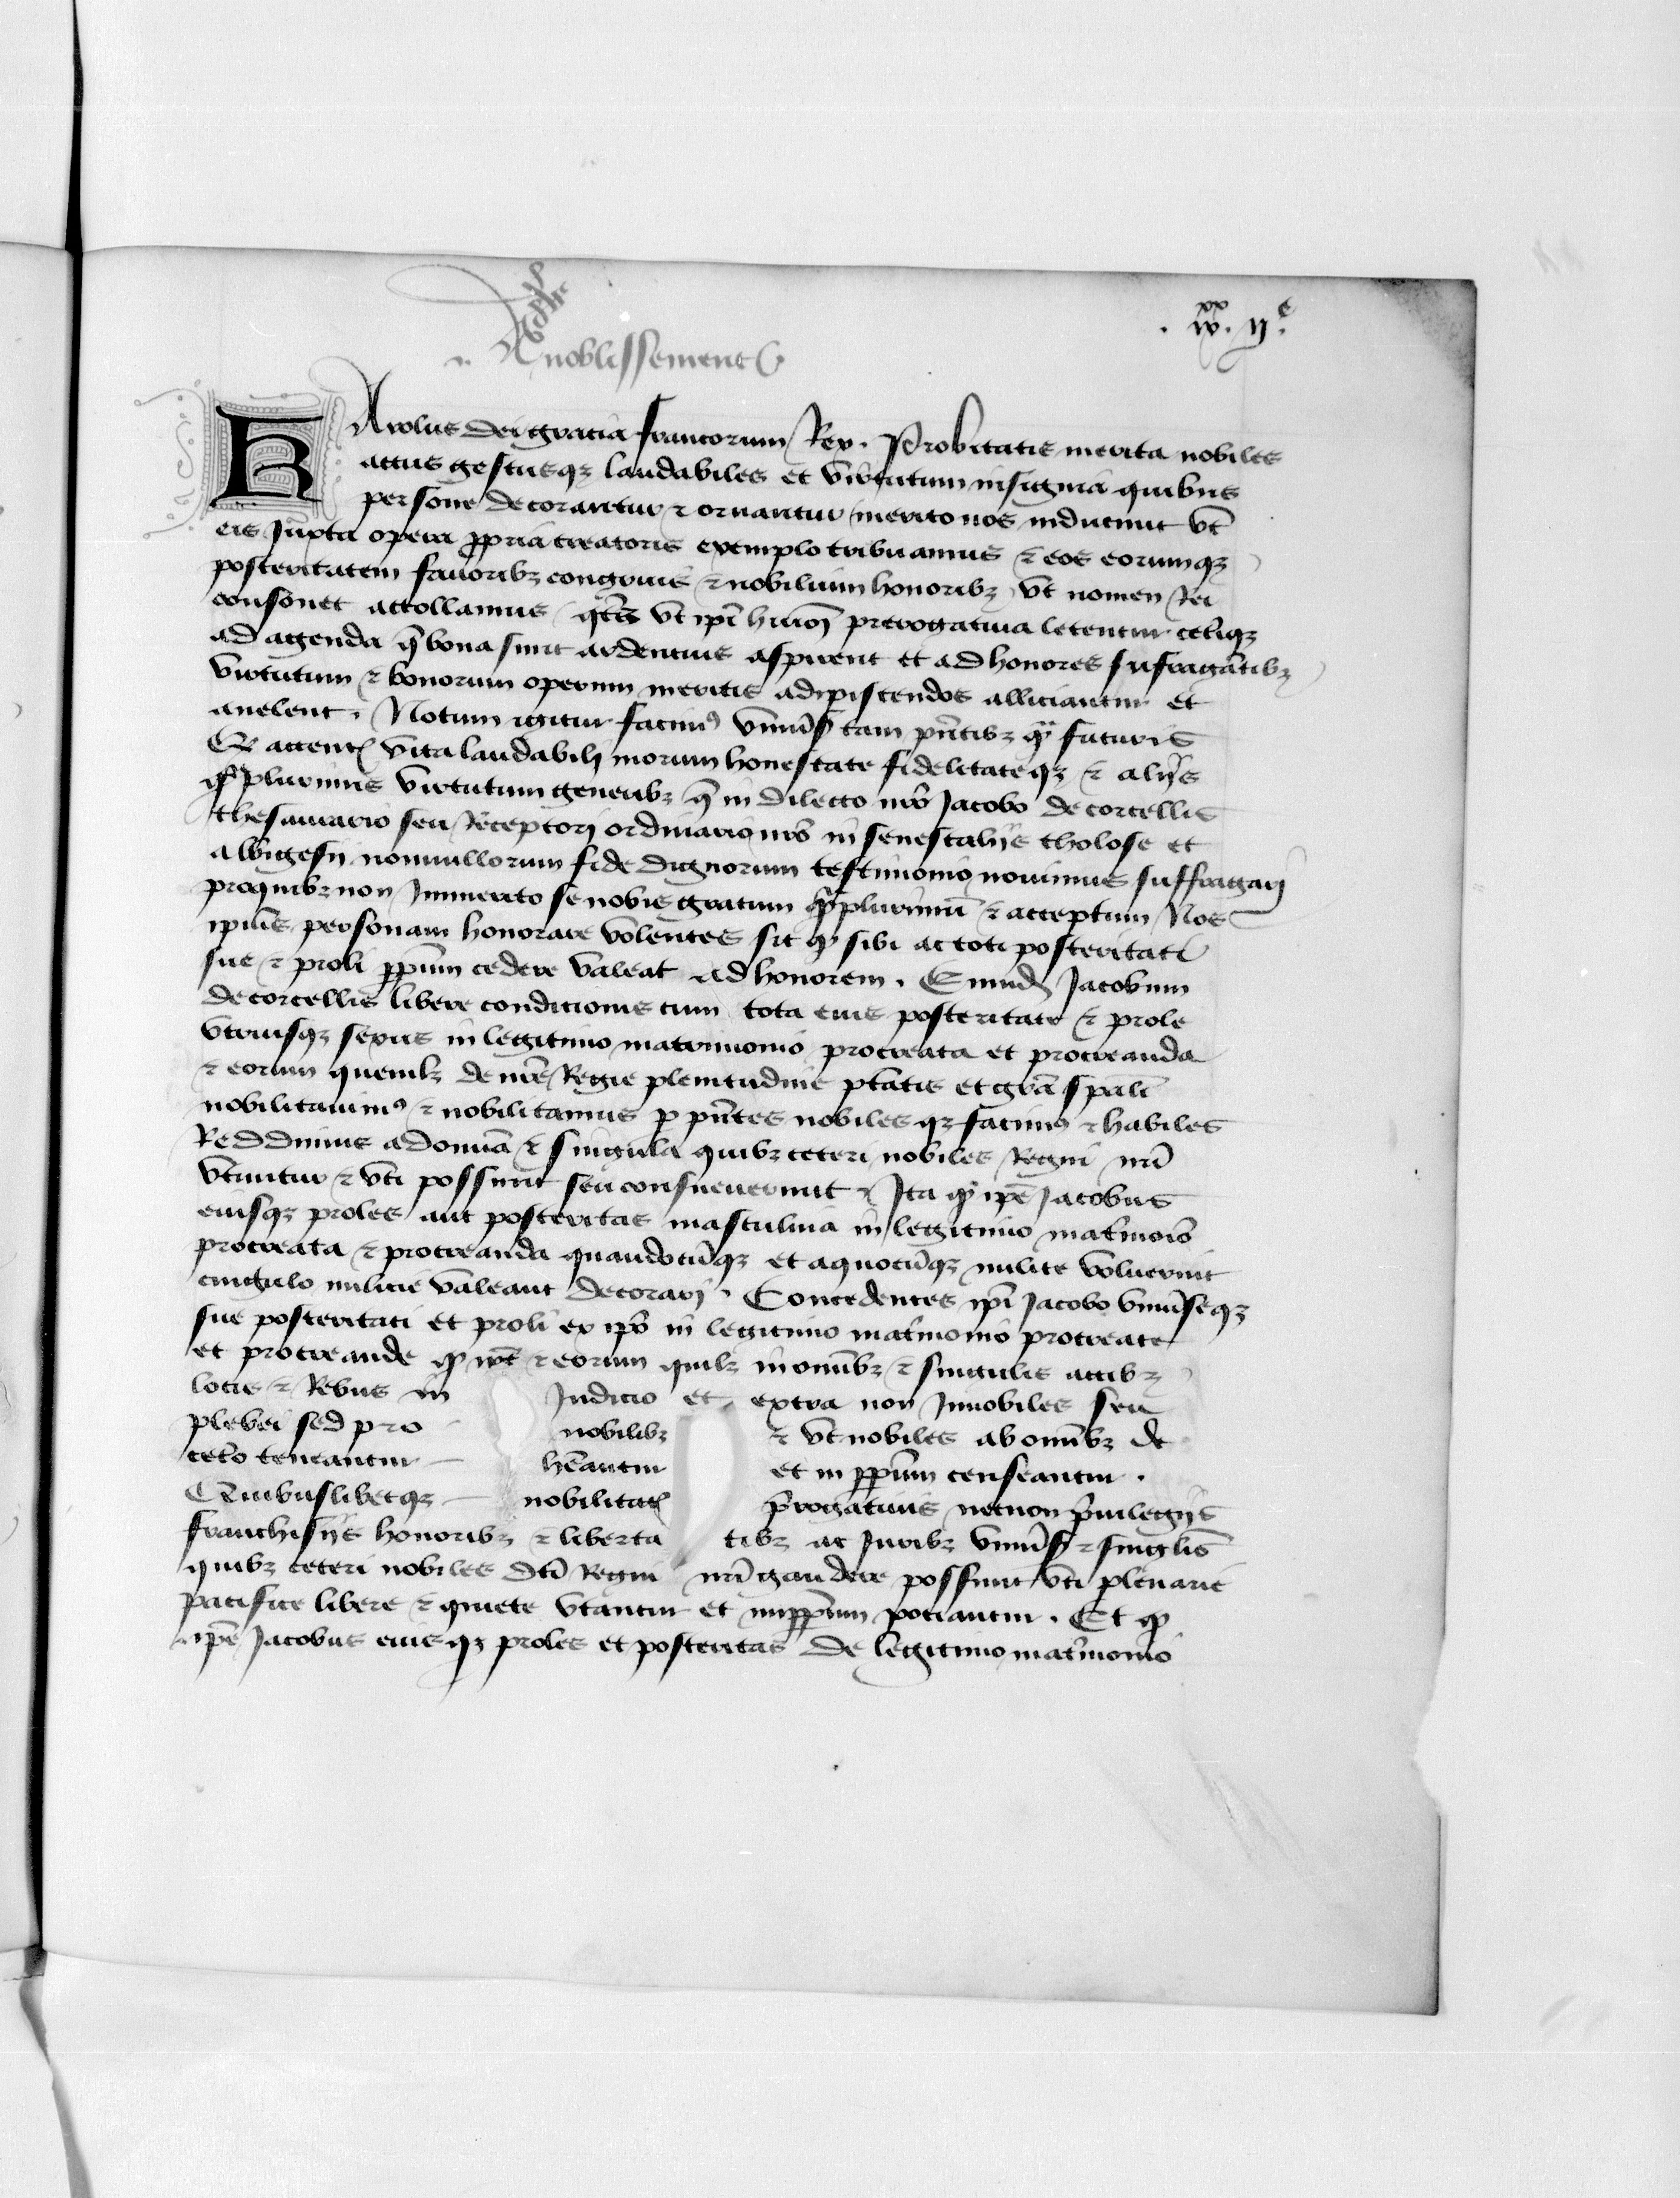 . iiijxx. ije.
Anoblissement
KArolus dei gracia francorum Rex. Probitatis merita nobiles
actus gestusqz laudabiles et virtutum insignia quibus
persone decorantur ⁊ ornantur merito nos inducunt vt
eis Juxta opera ꝓpria creatoris exemplo tribuamus ⁊ eos eorumqz
posteritatem fauoribz congruis ⁊ nobilium honoribz vt nomen Rei
consonet attollamus qt̄s vt ip̄i huiōi prerogatiua letentur cet̄iqz
ad agenda q̄ bona sunt ardentius aspirent et ad honores sufragātibz
virtutum ⁊ bonorum operum meritis adipiscendos alliciantur et
anelent. Notum igitur facimꝰ vniūsis tam pn̄tibz qͣ futuris
Qͩ attenta vita laudabili morum honestate fidelitateqz ⁊ alijs
qͣpluribus virtutum generibz q̄ in dilecto nr̄o Jacobo de corcellis
thesaurario seu Receptori ordinario nr̄o in senescalijs tholose et
albigesij nonnullorum fide dignorum testimonio nouimus suffragari
pro quibz non Jmmerito se nobis gratum qͣplurimū ⁊ acceptum Nos
ipius personam honorare volentes sic ꝙ sibi ac toti posteritati
sue ⁊ proli ꝑpetuum cedere valeat ad honorem. Eundem Jacobum
de corcellis libere condicionis cum tota eius posteritate ⁊ prole
vtriusqz sexus in legitimo matrimonio procreata et procreanda
⁊ eorum quemlz de nr̄e Regie plenitudine ptātis et grā sp̄ali
nobilitauimꝰ ⁊ nobilitamus ꝑ pn̄tes nobiles qz facimꝰ ⁊ habiles
Reddimus ad omīa ⁊ singula quibz ceteri nobiles Regni nr̄i
vtuntur ⁊ vti possunt seu consueuerunt. Jta ꝙ ip̄e Jacobus
eiusqz proles aut posteritas masculina in legitimo matr̄imoīo
procreata ⁊ procreanda quandocūqz et a quocūqz milite voluerint
cingulo milicie valeant decorari. Concedentes ip̄i Jacobo vniūseqz
sue posteritati et proli ex ip̄o in legitimo matr̄imonio procreate
et procreande ꝙ ip̄e ⁊ eorum quilz in omībz ⁊ singulis actibz
locis ⁊ Rebus in Judicio et extra non Jnnobiles seu
plebei sed pro nobilibz ⁊ vt nobiles ab omībz de
cet̄o teneantur hēantur et in ꝑpm̄ censeantur.
Quibuslibetqz nobilitatis p̄rogatiuis necnon p̄uilegijs
franchisijs honoribz ⁊ liberta tibz ac Juribz vniūsis ⁊ singlīs
quibz ceteri nobiles dc̄i Regni nr̄i gaudere possunt vti plenarie
pacifice libere ⁊ quiete vtantur et inꝑpm̄ potiantur. Et ꝙ
ip̄e Jacobus eius qz proles et posteritas de legitimo matr̄imonio